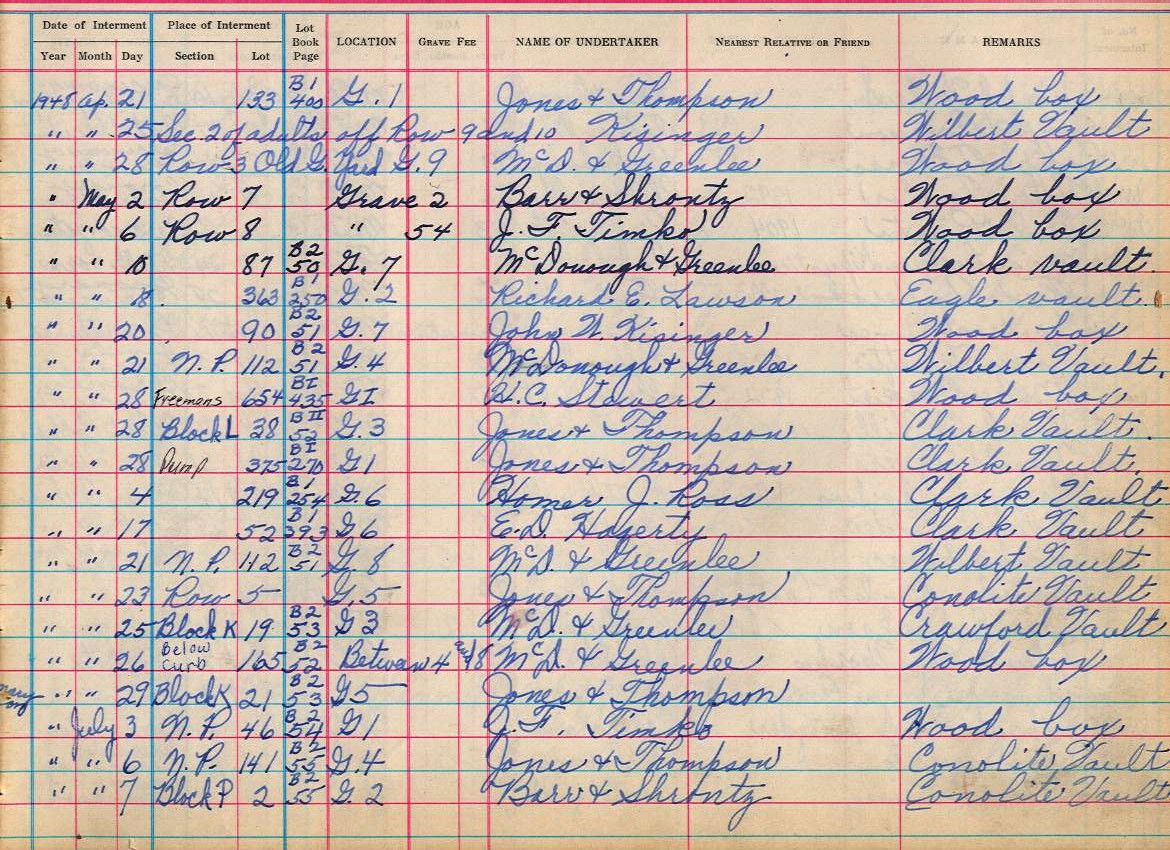 Date of Interment Place of Interment Lot Book Page LOCATION GRAVE FEE NAME OF UNDERTAKER NEAREST RELATIVE OR FRIEND REMARKS
Year Month Day Section Lot
1948 Ap. 21 133 B1 400 G. 1 Jones & Thompson Wood box
" " 25 Sec. 2 of adults off Row 9 and 10 Kisinger Wilbert Vault
" " 28 Row 3 Old G. Yard G. 9 McD. & Greenlee Wood box
" May 2 Row 7 Grave 2 Barr & Shrontz Wood box
" " 6 Row 8 " 54 J. F. Timko Wood box
" " 10 87 B2 50 G. 7 McDonough & Greenlee Clark vault.
" " 18 363 B1 250 G. 2 Richard E. Lawson Eagle vault.
" " 20 90 B2 51 G. 7 John W. Kisinger Wood box
" " 21 N. P. 112 B2 51 G. 4 McDonough & Greenlee Wilbert Vault.
" " 28 Freemans 654 BI 435 GI H. C. Stewert Wood box
" " 28 Block L 38 BII 52 G. 3 Jones & Thompson Clark Vault.
" " 28 Pump 375 BI 270 G1 Jones & Thompson Clark Vault.
" " 4 219 B1 254 G. 6 Homer J. Ross Clark Vault
" " 17 52 B1 393 G 6 E. D. Hagerty Clark Vault
" " 21 N. P. 112 B2 51 G. 8 McD. & Greenlee Wilbert Vault
" " 23 Row 5 G. 5 Jones & Thompson Conolite Vault
" " 25 Block K 19 B2 53 G 3 McD. & Greenlee Crawford Vault
" " 26 Below Curb 165 B2 52 Betwen 4 and 8 McD. & Greenlee Wood box
" " 29 Block K 21 B2 53 G 5 Jones & Thompson
" July 3 N. P. 46 B2 54 G 1 J. F. Timko Wood box
" " 6 N. P. 141 B2 55 G. 4 Jones & Thompson Conolite Vault
" " 7 Block P 2 B2 55 G. 2 Barr & Shrontz Conolite Vault